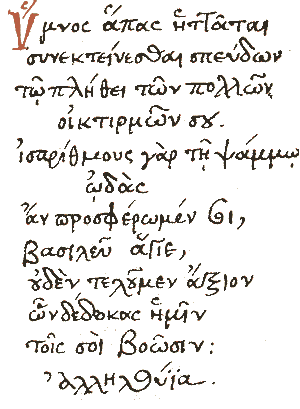 Ὕμνος ἅπας ἡττᾶται
συνεκτείνεσθαι σπεύδων
τῷ πλήθει τῶν πολλῶν
οἰκτιρμῶν σου.
ἰσαρίθμους γὰρ τῇ ψάμμῳ
ᾠδὰς
ἂν προσφέρωμέν σοι,
βασιλεῦ ἅγιε,
οὐδὲν τελοῦμεν ἄξιον
ὧν δέδωκας ἡμῖν
τοῖς σοὶ βοῶσιν:
Ἀλληλούϊα.